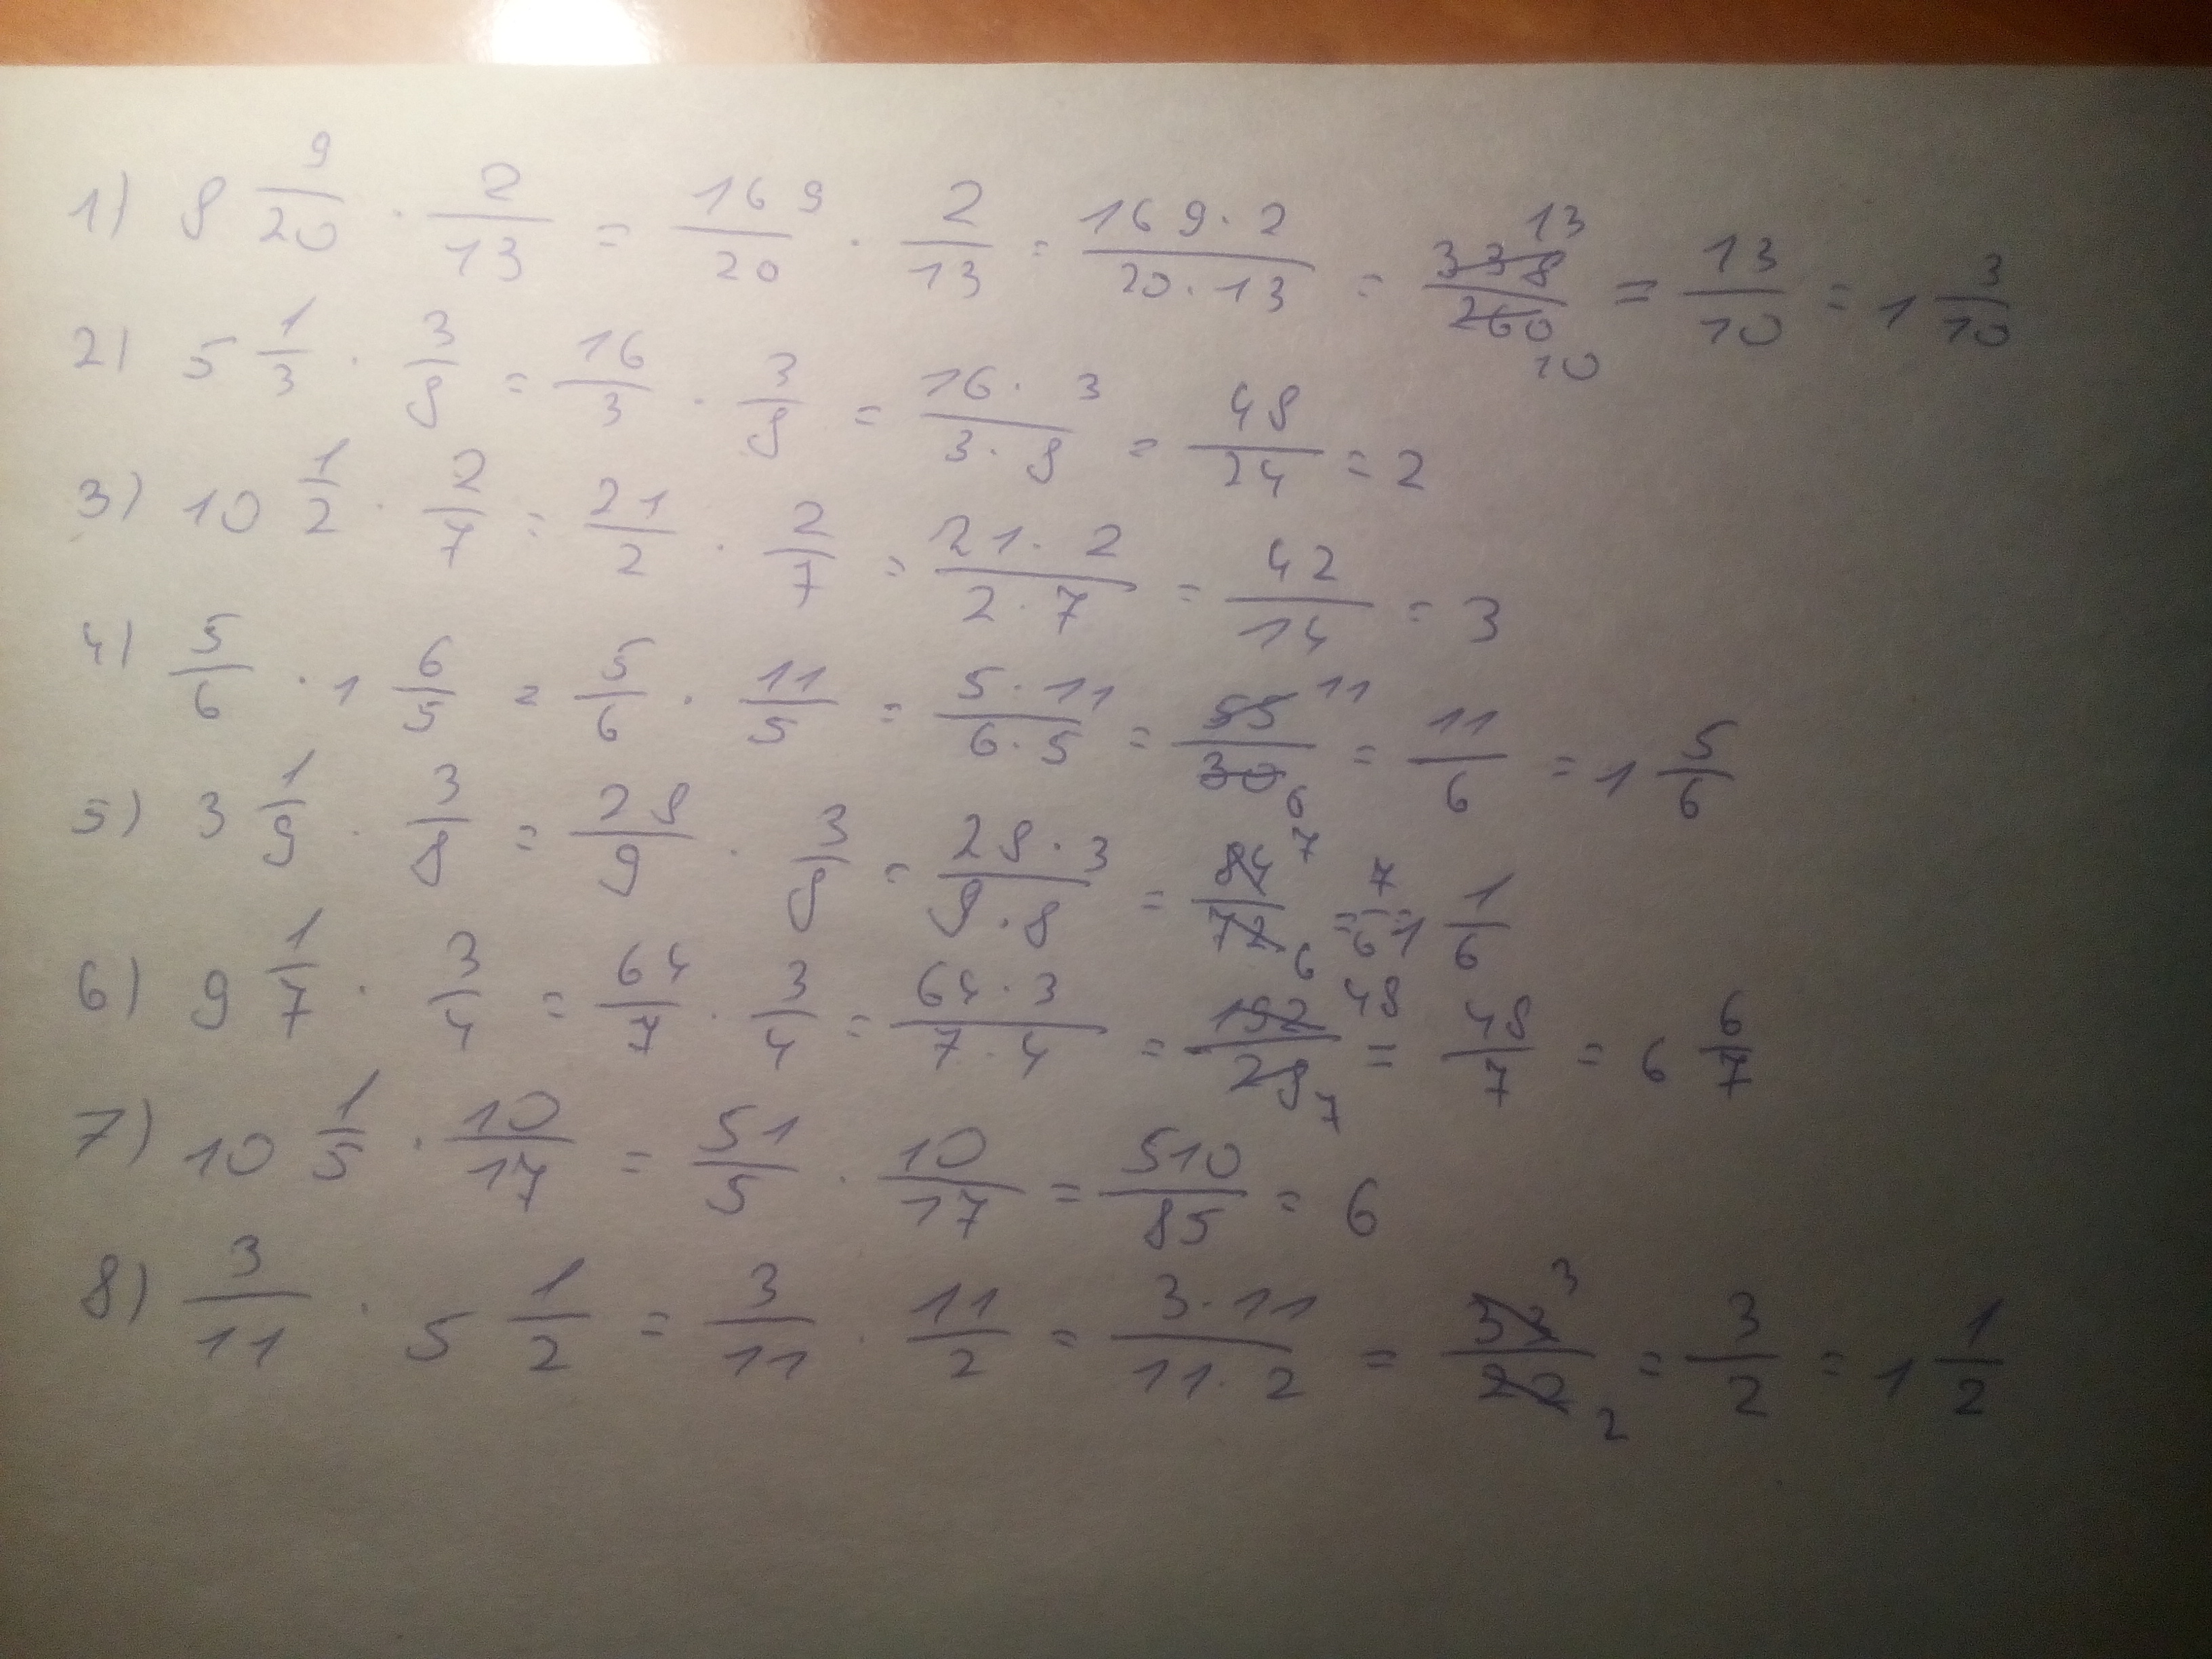 1) 8 9/20 · 2/13 = 169/20 · 2/13 = 169·2/20·13 = 338/260 13 10 = 13/10 = 1 3/10
2) 5 1/3 · 3/8 = 16/3 · 3/8 = 16·3/3·8 = 48/24 = 2
3) 10 1/2 · 2/7 = 21/2 · 2/7 = 21·2/2·7 = 42/14 = 3
4) 5/6 · 1 6/5 = 5/6 · 11/5 = 5·11/6·5 = 55/30 11 6 = 11/6 = 1 5/6
5) 3 1/9 · 3/8 = 28/9 · 3/8 = 28·3/9·8 = 84/72 7 6 = 7/6 = 1 1/6
6) 9 1/7 · 3/4 = 64/7 · 3/4 = 64·3/7·4 = 192/28 48 7 = 48/7 = 6 6/7
7) 10 1/5 · 10/17 = 51/5 · 10/17 = 510/85 = 6
8) 3/11 · 5 1/2 = 3/11 · 11/2 = 3·11/11·2 = 33/22 3 2 = 3/2 = 1 1/2